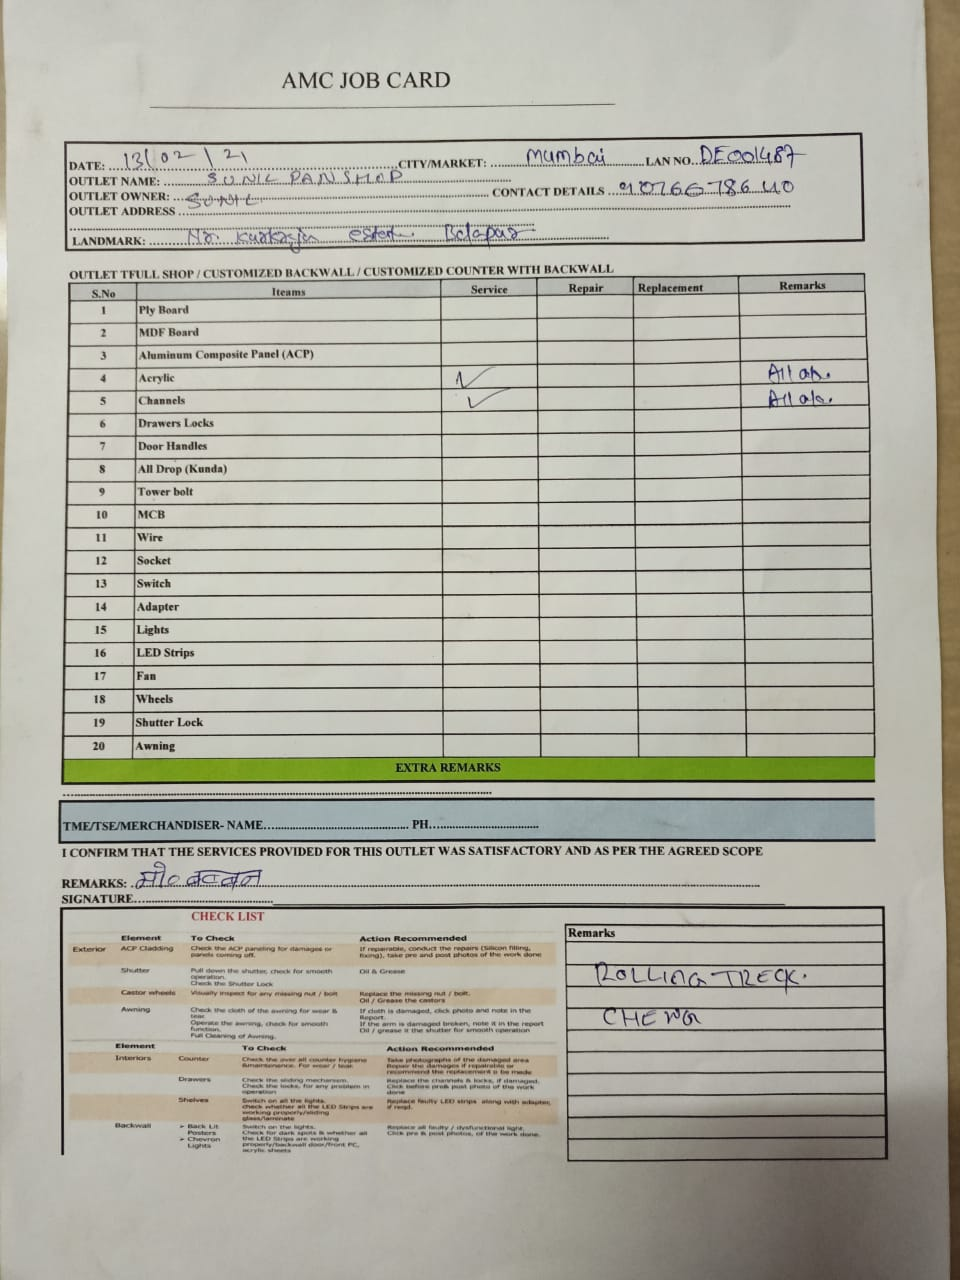 AMC JOB CARD
DATE: 13/02/21 CITY/MARKET: Mumbai LAN NO. DE001487
OUTLET NAME: SUNIL PAN SHOP
OUTLET OWNER: SUNIL CONTACT DETAILS
OUTLET ADDRESS
LANDMARK: Nr.
OUTLET TFULL SHOP / CUSTOMIZED BACKWALL / CUSTOMIZED COUNTER WITH BACKWALL
S.No Iteams Service Repair Replacement Remarks
1 Ply Board
2 MDF Board
3 Aluminum Composite Panel (ACP)
4 Acrylic ✓ All ok.
5 Channels ✓ All ok.
6 Drawers Locks
7 Door Handles
8 All Drop (Kunda)
9 Tower bolt
10 MCB
11 Wire
12 Socket
13 Switch
14 Adapter
15 Lights
16 LED Strips
17 Fan
18 Wheels
19 Shutter Lock
20 Awning
EXTRA REMARKS
TME/TSE/MERCHANDISER- NAME PH
I CONFIRM THAT THE SERVICES PROVIDED FOR THIS OUTLET WAS SATISFACTORY AND AS PER THE AGREED SCOPE
REMARKS:
SIGNATURE
CHECK LIST
Element To Check Action Recommended
Exterior ACP Cladding Check the ACP paneling for damages or panels coming off. If repairable, conduct the repairs (Silicon filling, fixing), take pre and post photos of the work done
Shutter Pull down the shutter, check for smooth operation. Oil & Grease
Check the Shutter Lock
Castor wheels Visually inspect for any missing nut / bolt Replace the missing nut / bolt.
Oil / Grease the castors
Awning Check the cloth of the awning for wear & tear. If cloth is damaged, click photo and note in the Report.
Operate the awning, check for smooth function. If the arm is damaged broken, note it in the report
Full Cleaning of Awning. Oil / grease it the shutter for smooth operation
Element To Check Action Recommended
Interiors Counter Check the over all counter hygiene &maintenance. For wear / teak Take photographs of the damaged area
Repair the damages if repairable or recommend the replacement to be made
Drawers Check the sliding mechanism. Replace the channels & locks, if damaged.
Check the locks, for any problem in operation Click before pre& post photo of the work done
Shelves Switch on all the lights. Replace faulty LED strips along with adapter, if reqd.
check whether all the LED Strips are working properly/sliding glass/laminate
Backwall ➢ Back Lit Posters Switch on the lights. Replace all faulty / dysfunctional light.
➢ Chevron Lights Check for dark spots & whether all the LED Strips are working properly/backwall door/front PC, acrylic sheets Click pre & post photos, of the work done.
Remarks
ROLLING TRECK.